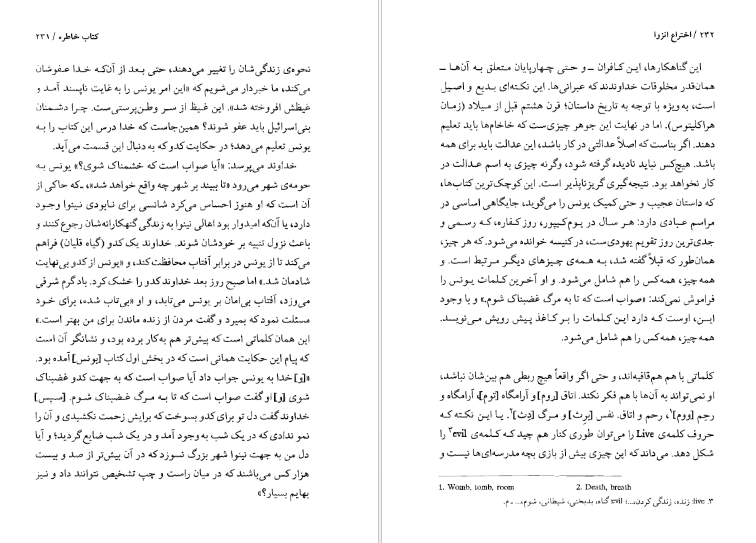 کتاب خاطره / ۲۳۱
نحوه‌ی زندگی‌شان را تغییر می‌دهند، حتی بعد از آن‌که خدا عفوشان
می‌کند، ما خبردار می‌شویم که «این امر یونس را به غایت ناپسند آمد و
غیظش افروخته شد». این غیظ از سر وطن‌پرستی‌ست. چرا دشمنان
بنی‌اسرائیل باید عفو شوند؟ همین‌جاست که خدا درس این کتاب را به
یونس تعلیم می‌دهد؛ در حکایت کدو که به دنبال این قسمت می‌آید.
خداوند می‌پرسد: «آیا صواب است که خشمناک شوی؟» یونس به
حومه‌ی شهر می‌رود «تا ببیند بر شهر چه واقع خواهد شد»، ـ‌که حاکی از
آن است که او هنوز احساس می‌کرد شانسی برای نابودی نینوا وجود
دارد، یا آن‌که امیدوار بود اهالی نینوا به زندگی گنهکارانه‌شان رجوع کنند و
باعث نزول تنبیه بر خودشان شوند. خداوند یک کدو (گیاه قلیان) فراهم
می‌کند تا از یونس در برابر آفتاب محافظت کند، و «یونس از کدو بی‌نهایت
شادمان شد.» اما صبح روز بعد خداوند کدو را خشک کرد. باد گرم شرقی
می‌وزد، آفتاب بی‌امان بر یونس می‌تابد، و او «بی‌تاب شده، برای خود
مسئلت نمود که بمیرد و گفت مردن از زنده ماندن برای من بهتر است.»
این همان کلماتی است که پیش‌تر هم به‌کار برده بود، و نشانگر آن است
که پیام این حکایت همانی است که در بخش اول کتاب [یونس] آمده بود.
«[و] خدا به یونس جواب داد آیا صواب است که به جهت کدو غضبناک
شوی [و] او گفت صواب است که تا به مرگ غضبناک شوم. [سپس]
خداوند گفت دل تو برای کدو بسوخت که برایش زحمت نکشیدی و آن را
نمو ندادی که در یک شب به وجود آمد و در یک شب ضایع گردید؛ و آیا
دل من به جهت نینوا شهر بزرگ نسوزد که در آن بیش‌تر از صد و بیست
هزار کس می‌باشند که در میان راست و چپ تشخیص نتوانند داد و نیز
بهایم بسیار؟»
۲۳۲ / اختراع انزوا
این گناهکارها، این کافران ــ و حتی چهارپایان متعلق به آن‌ها ــ
همان‌قدر مخلوقات خداوندند که عبرانی‌ها. این نکته‌ای بدیع و اصیل
است، به‌ویژه با توجه به تاریخ داستان؛ قرن هشتم قبل از میلاد (زمان
هراکلیتوس). اما در نهایت این جوهر چیزی‌ست که خاخام‌ها باید تعلیم
دهند. اگر بناست که اصلاً عدالتی در کار باشد، این عدالت باید برای همه
باشد. هیچ‌کس نباید نادیده گرفته شود، وگرنه چیزی به اسم عدالت در
کار نخواهد بود. نتیجه‌گیری گریزناپذیر است. این کوچک‌ترین کتاب‌ها،
که داستان عجیب و حتی کمیک یونس را می‌گوید، جایگاهی اساسی در
مراسم عبادی دارد: هر سال در یوم‌کیپور، روز کفاره، که رسمی و
جدی‌ترین روز تقویم یهودی‌ست، در کنیسه خوانده می‌شود. که هر چیز،
همان‌طور که قبلاً گفته شد، به همه‌ی چیزهای دیگر مرتبط است. و
همه‌چیز، همه‌کس را هم شامل می‌شود. و او آخرین کلمات یونس را
فراموش نمی‌کند: «صواب است که تا به مرگ غضبناک شوم.» و با وجود
این، اوست که دارد این کلمات را بر کاغذ پیش رویش می‌نویسد.
همه‌چیز، همه‌کس را هم شامل می‌شود.
کلماتی با هم هم‌قافیه‌اند، و حتی اگر واقعاً هیچ ربطی هم بین‌شان نباشد،
او نمی‌تواند به آن‌ها با هم فکر نکند. اتاق [روم] و آرامگاه [توم]، آرامگاه و
رحم [ووم]۱، رحم و اتاق. نفس [برث] و مرگ [دث]۲. یا این نکته که
حروف کلمه‌ی Live را می‌توان طوری کنار هم چید که کلمه‌ی evil۳ را
شکل دهد. می‌داند که این چیزی بیش از بازی بچه مدرسه‌ای‌ها نیست و
1. Womb, tomb, room 2. Death, breath
۳. live: زنده، زندگی کردن...؛ evil: گناه، بدبختی، شیطانی، شوم... ـ م.